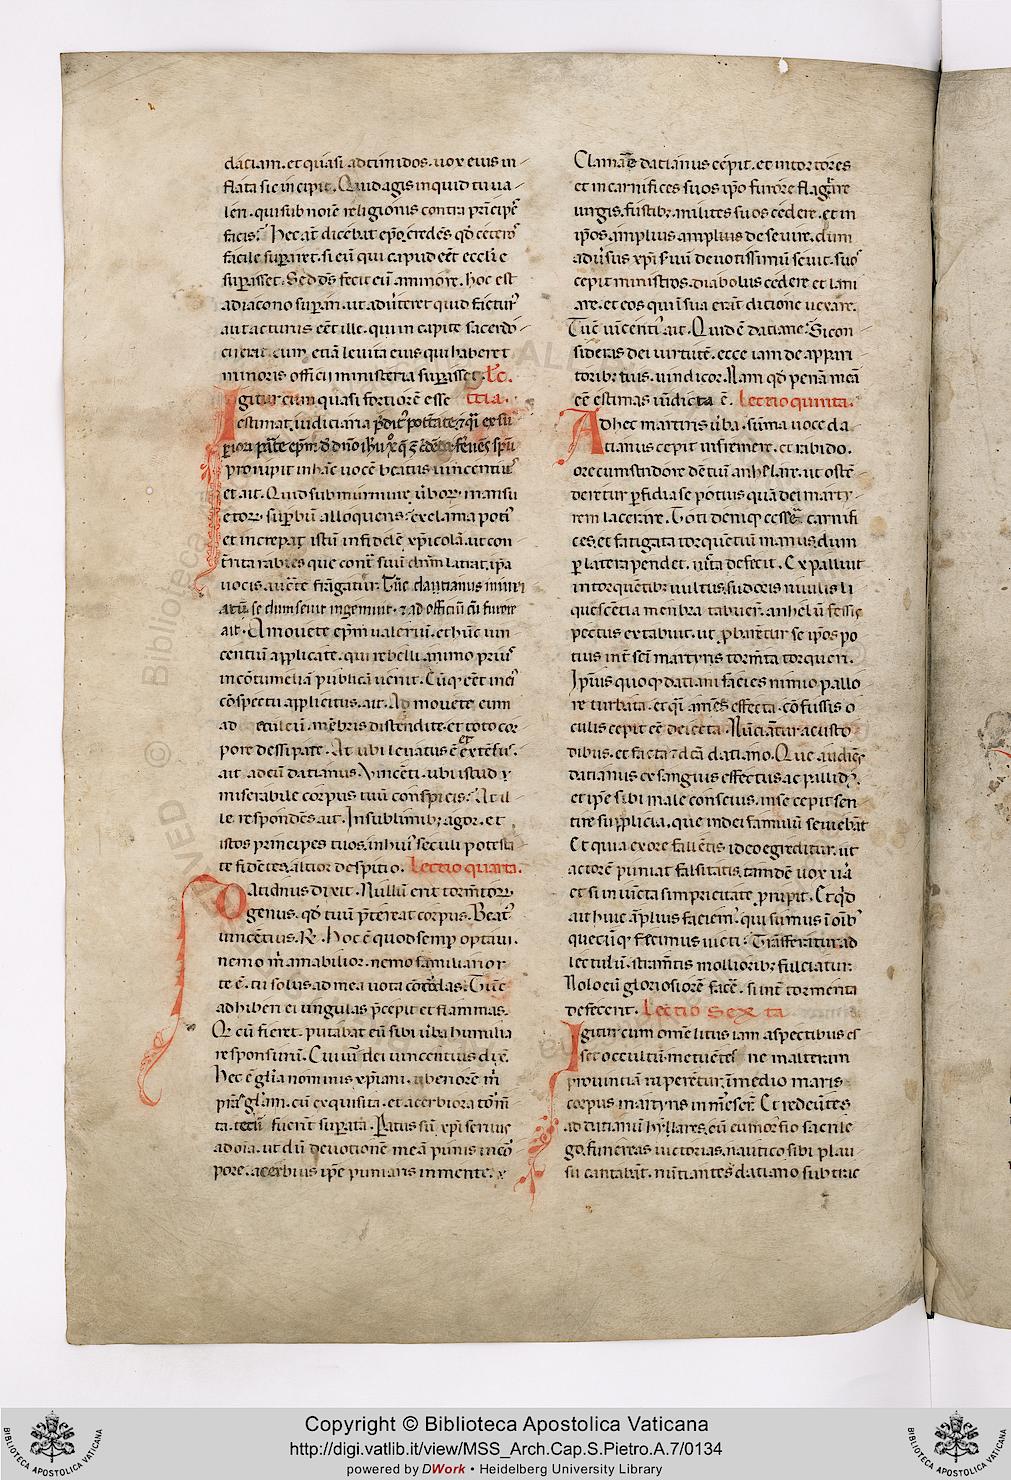 daciam. et quasi ad timidos. uox eius in
flata sic incipit. Quid agis inquid tu ua
len. qui sub noīe religionis contra prīcipē
facis? hec aūt dicebat ep̄o, credēs qđ ceteros
facile sup̲aret. si eū qui capud eēt ecclīe
sup̲asset. Sed d̄s fecit eū aminore. hoc est
a diacono sup̲ari. ut aduīteret quid facturꝰ
aut acturus eēt ille. qui in capite sacerdo
cii erit. cum etiā leuita eius qui haberet
minoris officii ministeria sup̲asset. Lc̄.
Igitur cum quasi fortiorē esse tcia.
estimat. iudiciaria
prorupit in hāc uocē beatus uincentius
et ait. Quid submurmure ūborꝝ. mansu
etorꝝ. sup̲bū alloqueris? exclama potiꝰ
et increpat istū infidelē xp̄icolā. ut con
t̄rita rabies que cont̄ suū dn̄m latrat. ip̄a
uocis. auctē frāgatur. Tūc daytianus
se dum seuit ingemuit. et ad officiū cū furore
ait. Amouete ep̄m ualeriū. et hūc uin
centiū applicate. qui rebelli animo prius
in cōtumeliā publicā uenit. Cūq eēt ineiꝰ
cōspectu applicitus. ait. Admouete eum
ad eculeū. mēbris distendite. et toto cor
pore dessipate. At ubi leuatus ē et extēsus.
ait ad eū datianus. Vincēti. ubi istud ꝯ
miserabile corpus tuū conspicis? At il
le respondēs ait. In sublimibꝫ agor. et
istos principes tuos. in huiꝰ seculi potesta
te fidētes. altior despitio. Lectio quarta.
Datianus dixit. Nullū erit torm̄torꝝ
genus. qđ tuū p̄tereat corpus. Beatꝰ
uincētius. R̄. Hoc ē quod semp̲ optaui.
nemo m̄ amabilior. nemo familiarior
te ē. tu solus ad mea uota cōcordas. Tūc
adhiberi ei ungulas p̄cepit et flammas.
Q̄ cū fieret. putabat eū sibi ūba humilia
responsurū. Cui uir dei uincentius dixē.
Hec ē glīa nominis xp̄iani. ubenorē m̄
pras gl̄am. cū exquisita. et acerbiora torm̄
ta. tecū fuerīt sup̲ata. Paratus sū xp̄i seruus
ad oīa. ut dū deuotionē meā punis in cor
pore. acerbius ip̄e puniaris in mente. ꝯ
Clamāe datianus cepit. et in tortores
et in carnifices suos ip̄o furore flagrāre
uirgis. fustibꝫ. milites suos cedere. et in
ip̄os. amplius amplius deseuire. dum
adūsus xp̄i s̄uū deuotissimū seuit. suos
cepit ministros. diabolus cedere et lani
are. et eos qui ī sua erāt dicione uexare.
Tūc uincentiꝰ ait. Quid ē datiane? Si con
sideras dei uirtutē. ecce iam de appari
toribꝫ tuis. uindicor. Nam qđ penā meā
eē estimas uīdicta ē. Lectio quinta.
Ad hec martiris ūba. sūma uoce da
tianus cepit infremere. et rabido.
ore cum stridore dētiū anhelare. ut ostē
deretur p̲fidia se potius quā dei marty
rem lacerare. Toti deniq cessāe carnifi
ces. et fatigata torquētiū manus. dum
p̲ latera pendet. uīta defecit. Expalluit
in torquētibꝫ uultus. sudoris riuulis li
quescētia membra tabuerū. anhelū fessis
pectus extabuit. ut p̲barētur se ip̄os po
tius int̄ scī martyris torm̄ta torqueri.
Ip̄ius quoq daciani facies nimio pallo
re turbata. et q̄i amēs effecta. cōfussis o
culis cepit eē deiecta. Nūciātur a custo
dibus. et facta et dcā datiano. Que audiēs
datianus exsanguis effectus ac pallidꝰ.
et ip̄e sibi male conscius. in se cepit sen
tire supplicia. que in dei famulū seuiebāt
Et quia ex ore fallētis ideo egreditur. ut
actorē puniat falsitatis. tamdē uox uīa
et si inuicta simpricitate. p̲rupit. Et qđ
ait huic āplius faciemꝰ. qui sumus ī oībꝰ
quecūq fecimus uicti? Trāsferatur ad
lectulū. stram̄tis mollioribꝫ fulciatur.
Nolo eū gloriosiorē facē. si int̄ tormenta
defecerit. Lectio Sexta
Igitur cum omne litus iam aspectibus es
set occultū. metuētes ne in alterum
prouinciā raperētur. ī medio maris
corpus martyris īmēserē. Et redeūtes
ad datianū hyllares, cū eumorfio sacrile
go. funereas uictorias. nautico sibi plau
su cantabāt. nūtiantes datiano sub triç
Copyright © Biblioteca Apostolica Vaticana
http://digi.vatlib.it/view/MSS_Arch.Cap.S.Pietro.A.7/0134
powered by DWork • Heidelberg University Library
BIBLIOTECA APOSTOLICA VATICANA
BIBLIOTECA APOSTOLICA VATICANA